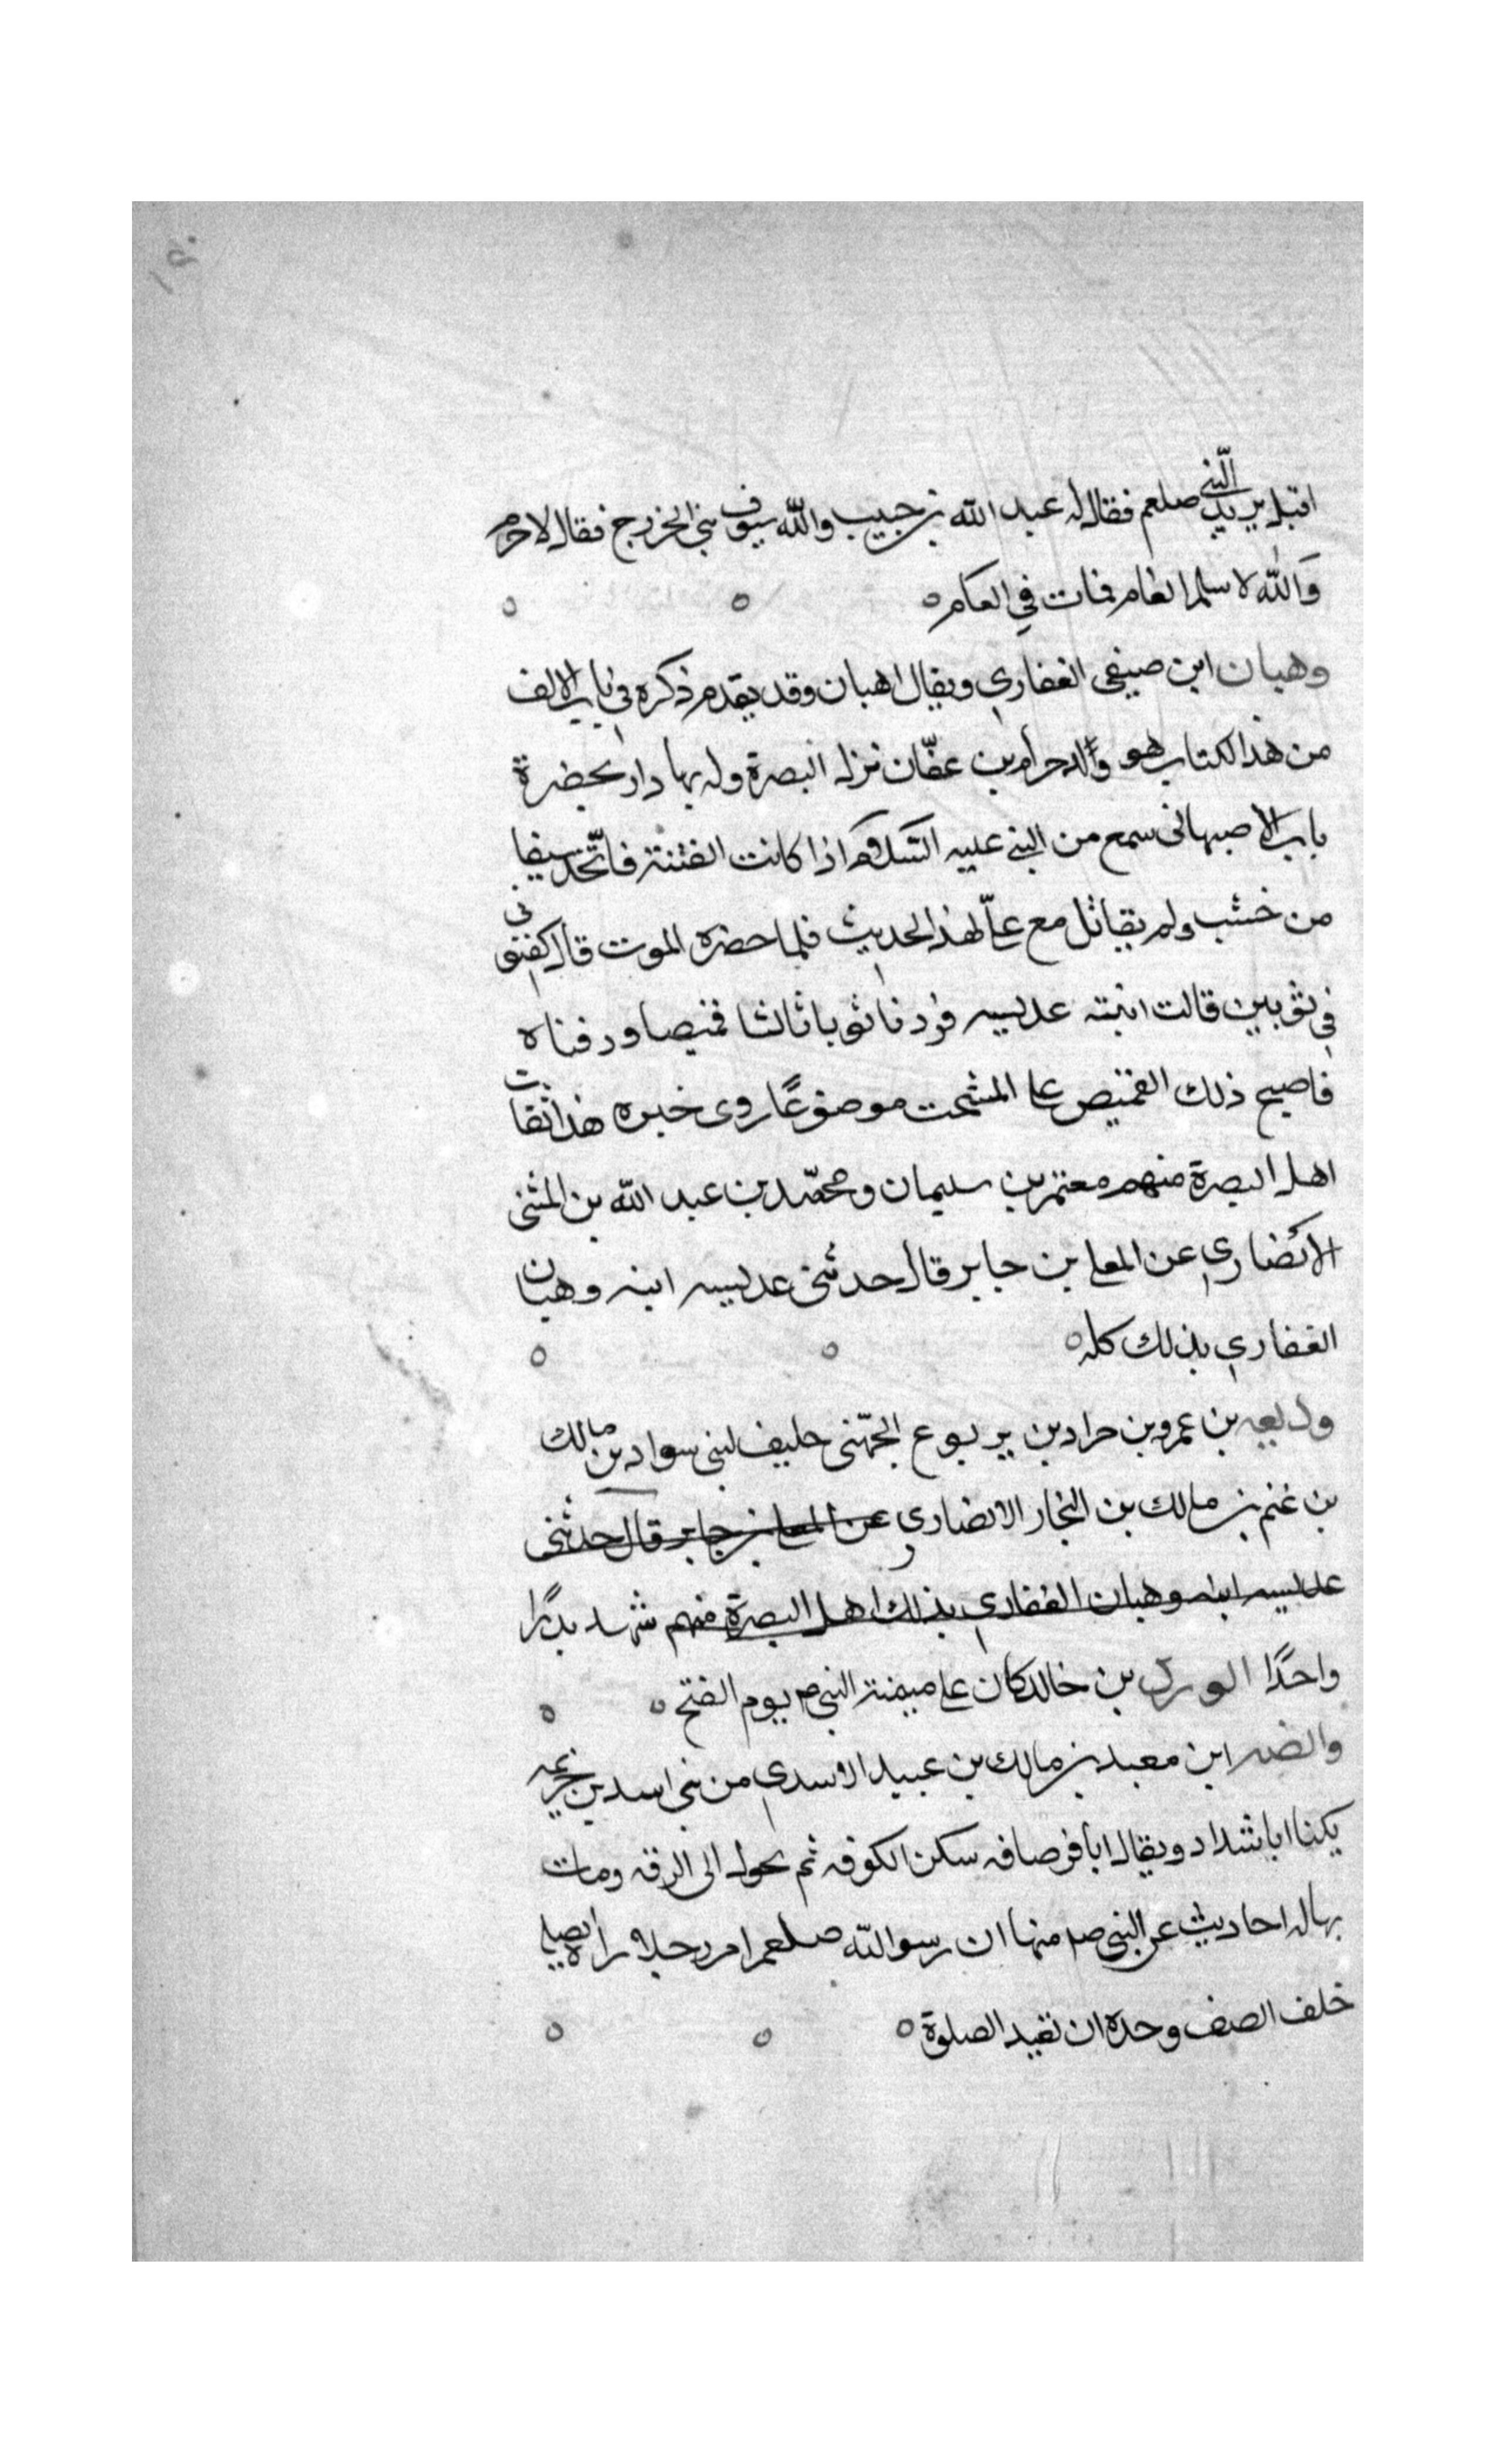 اقبل يريد النبي صلعم فقال له عبد الله بن حبيب والله سيوف بني الخزرج فقال لا جرم
والله لا سلم العام فمات في العام
وهبان ابن صيفي الغفاري ويقال اهبان وقد يقدم ذكره في باب الالف
من هذا الكتاب هو والد حرام بن عفّان نزل البصرة وله بها دار بحضرة
باب الاصبهاني سمع من النبي عليه السّلام اذا كانت الفتنة فاتّخذ سيفا
من خشب ولم يقاتل مع علي لهذا الحديث فلما حضره الموت قال كفنوني
في ثوبين قالت ابنته عديسه فزدنا ثوبا ثالثا قميصا ودفناه
فاصبح ذلك القميص على المشجب موضوعًا روى خبره هذا ثقات
اهل البصرة منهم معتمر بن سليمان ومحمّد بن عبد الله بن المثنى
الانصاري عن المعلى بن جابر قال حدثني عديسه ابنه وهبان
الغفاري بذلك كله
وديعه بن عمرو بن جراد بن يربوع الجهني حليف لبني سواد بن مالك
بن غنم بن مالك بن النجار الانصاري عن المعلى بن جابر قال حدثني
عديسه ابنه وهبان الغفاري بذلك اهل البصرة منهم شهد بدرًا
واحدًا بن خالد كان على ميمنة النبي ص يوم الفتح
ابن معبد بن مالك بن عبيد الاسدي من بني اسد بن خزيمه
يكنا ابا شداد ويقال ابا قرصافه سكن الكوفه ثم تحول الى الرقه ومات
بها له احاديث عن النبي صم منها ان رسوالله صلعم امر رجلا راه يصلي
خلف الصف وحده ان تعيد الصلوة